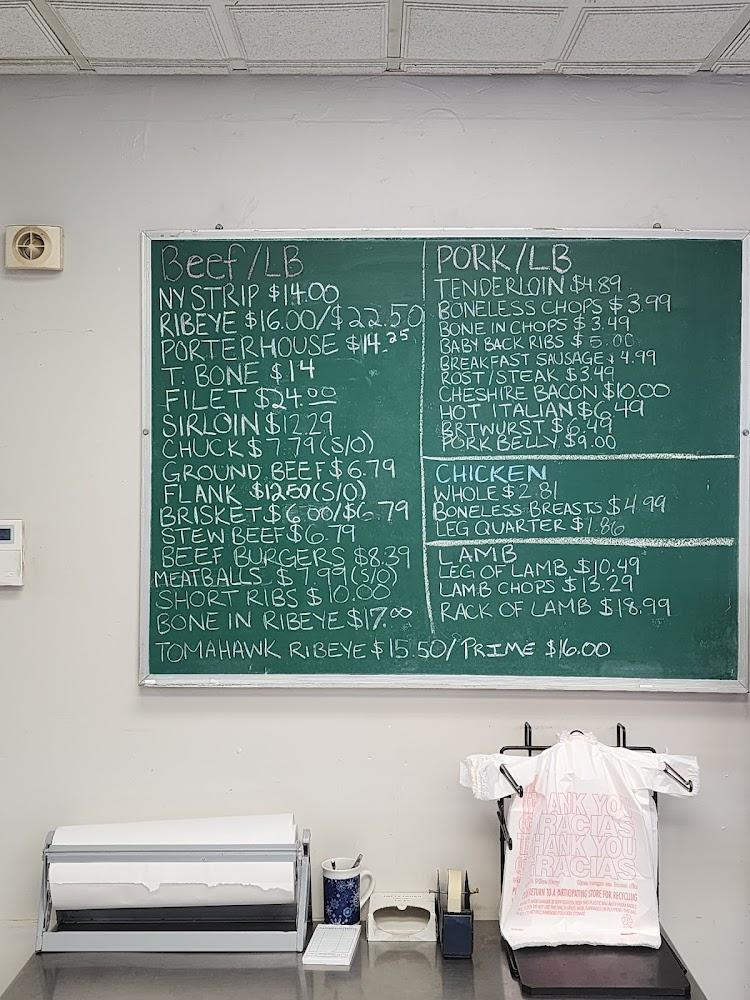 Beef/LB
NY STRIP $14.00
RIBEYE $16.00/$22.50
PORTERHOUSE $14.25
T. BONE $14
FILET $24.00
SIRLOIN $12.29
CHUCK $7.79(S/O)
GROUND BEEF $6.79
FLANK $12.50(S/O)
BRISKET $6.00/$6.79
STEW BEEF $6.79
BEEF BURGERS $8.39
MEATBALLS $7.99(S/O)
SHORT RIBS $10.00
BONE IN RIBEYE $17.00
TOMAHAWK RIBEYE $15.50/PRIME $16.00
PORK/LB
TENDERLOIN $4.89
BONELESS CHOPS $3.99
BONE IN CHOPS $3.49
BABY BACK RIBS $5.00
BREAKFAST SAUSAGE $4.99
ROST/STEAK $3.49
CHESHIRE BACON $10.00
HOT ITALIAN $6.49
BRTWURST $6.49
PORK BELLY $9.00
CHICKEN
WHOLE $2.81
BONELESS BREASTS $4.99
LEG QUARTER $1.86
LAMB
LEG OF LAMB $10.49
LAMB CHOPS $13.29
RACK OF LAMB $18.99
THANK YOU
GRACIAS
THANK YOU
GRACIAS
RETURN TO A PARTICIPATING STORE FOR RECYCLING